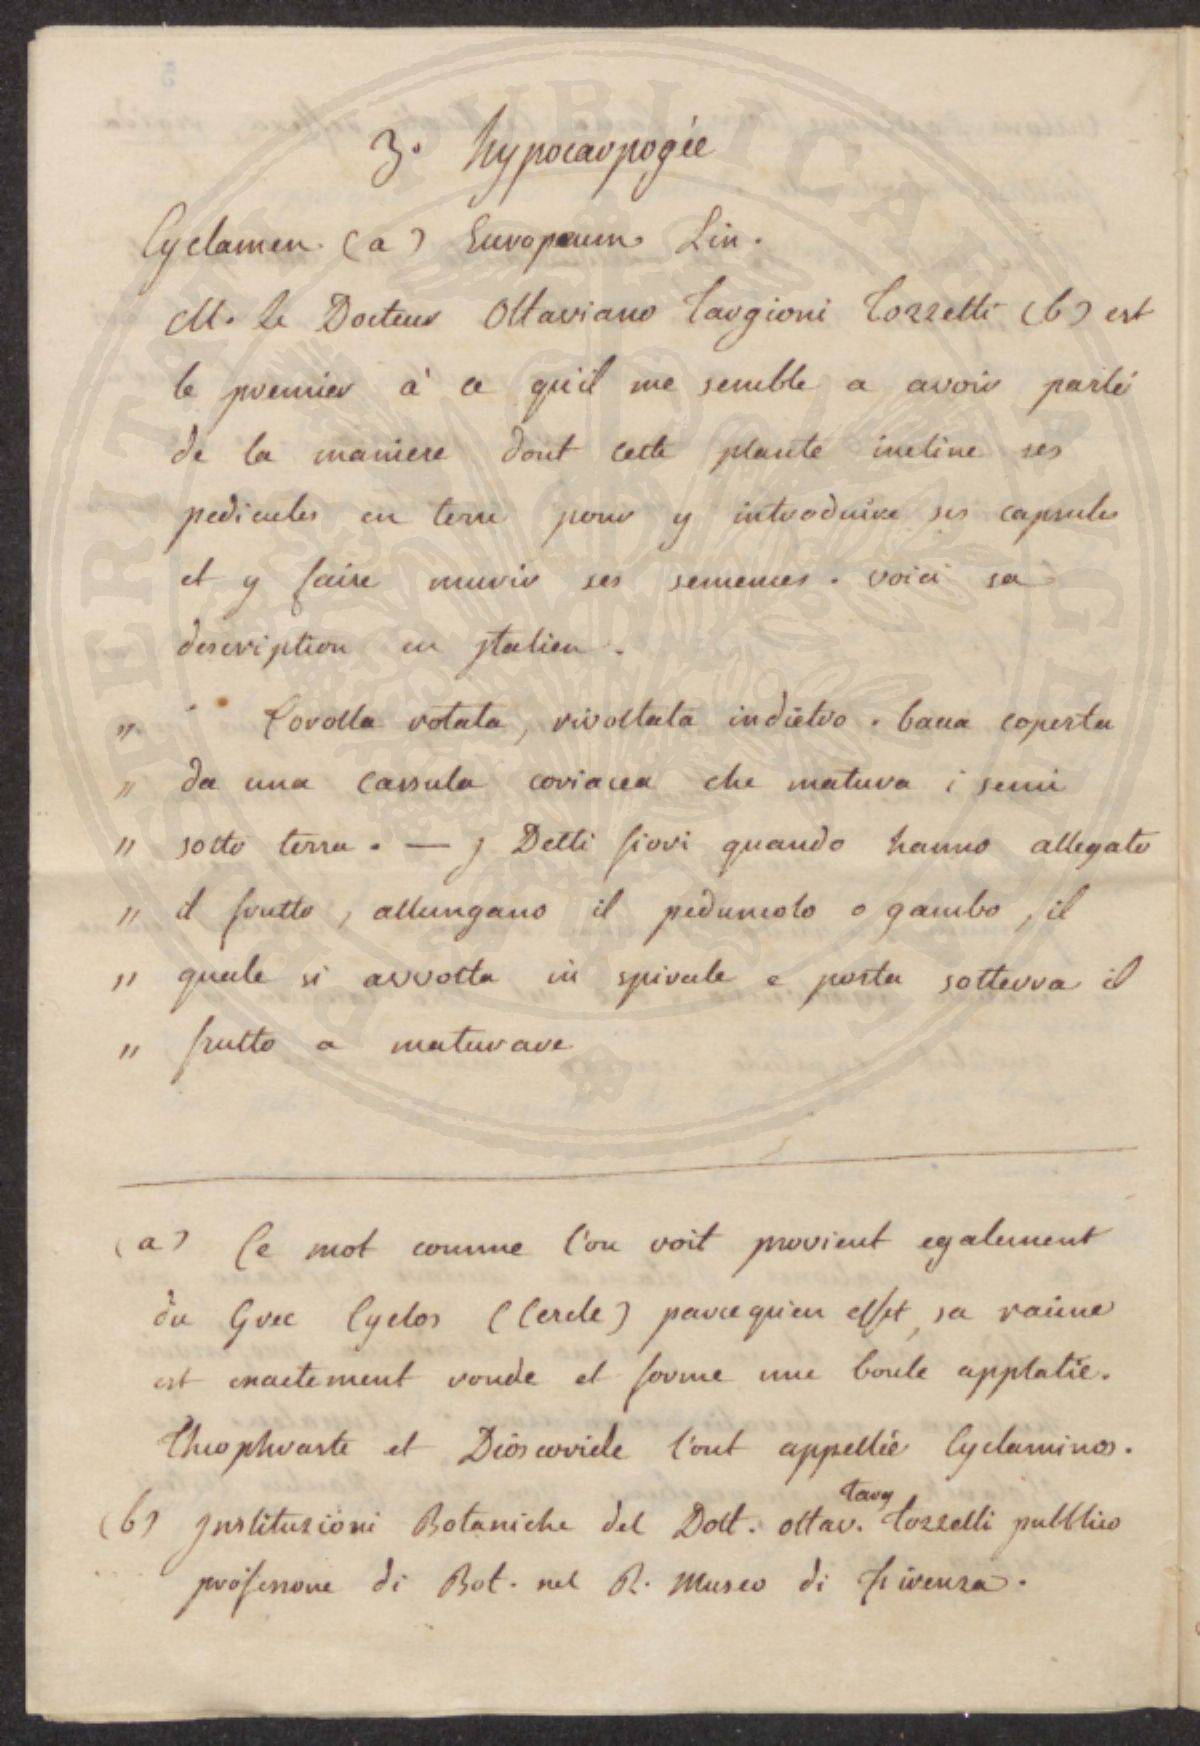 3.° hypocarpogée
Cyclamen. (a) Europæum. Lin.
M. Le Docteur Ottaviano Targioni Tozzetti (b) est
le premier à ce qu'il me semble a avoir parlé
de la maniere dont cette plante incline ses
pedicules en terre pour y introduire ses capsules
et y faire murir ses semences. voici sa
description en jtalien.
" Corolla rotata, rivoltata indietro. bacca coperta
" da una cassula coriacea che matura i semi
" sotto terra. — J Detti fiori quando hanno allegato
" il frutto, allungano il peduncolo o gambo, il
" quale si avvolta in spirale e porta sotterra il
" frutto a maturare
(a) Ce mot comme l'on voit provient egalement
du Grec Cyclos (Cercle) parcequ'en effet, sa racine
est exactement ronde et forme une boule applatie.
Theophraste et Dioscoride l'ont appellée Cyclaminos.
(b) jnstituzioni Botaniche del Dott. ottav. Targ Tozzetti pubblico
professore di Bot. nel R. Museo di Firenza.